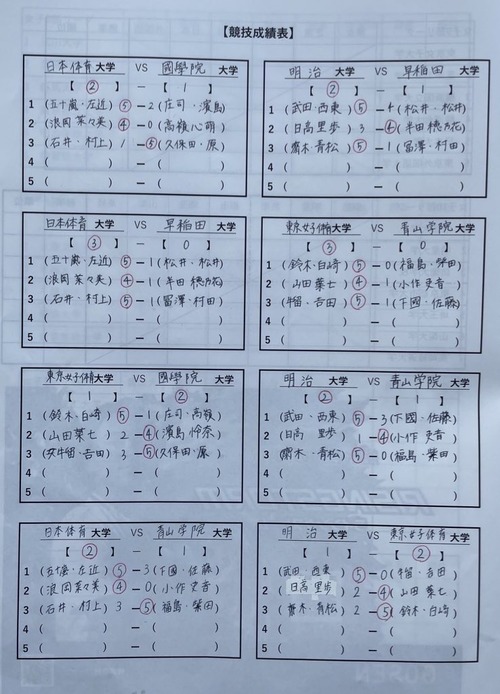 【競技成績表】
日本体育 大学 VS 國學院 大学
【 ② 】 － 【 1 】
1 (五十嵐・左近) ⑤ － 2 (庄司・濱島)
2 (浪岡菜々美) ④ － 0 (高嶺心萌)
3 (石井・村上) 1 － ⑤ (久保田・原)
4 ( ) － ( )
5 ( ) － ( )
明治 大学 VS 早稲田 大学
【 ② 】 － 【 1 】
1 (武田・西東) ⑤ － 4 (松井・松井)
2 (日高里歩) 3 － ④ (半田穂乃花)
3 (齋木・青松) ⑤ － 1 (冨澤・村田)
4 ( ) － ( )
5 ( ) － ( )
日本体育 大学 VS 早稲田 大学
【 ③ 】 － 【 0 】
1 (五十嵐・左近) ⑤ － 1 (松井・松井)
2 (浪岡菜々美) ④ － 1 (半田穂乃花)
3 (石井・村上) ⑤ － 1 (冨澤・村田)
4 ( ) － ( )
5 ( ) － ( )
東京女子体育 大学 VS 青山学院 大学
【 ③ 】 － 【 0 】
1 (鈴木・白崎) ⑤ － 0 (福島・柴田)
2 (山田菜七) ④ － 1 (小作史音)
3 (牛留・吉田) ⑤ － 1 (下國・佐藤)
4 ( ) － ( )
5 ( ) － ( )
東京女子体育 大学 VS 國學院 大学
【 1 】 － 【 ② 】
1 (鈴木・白崎) ⑤ － 1 (庄司・高嶺)
2 (山田菜七) 2 － ④ (濱島怜奈)
3 (牛留・吉田) 3 － ⑤ (久保田・原)
4 ( ) － ( )
5 ( ) － ( )
明治 大学 VS 青山学院 大学
【 ② 】 － 【 1 】
1 (武田・西東) ⑤ － 3 (下國・佐藤)
2 (日高 里歩) 1 － ④ (小作史音)
3 (齋木・青松) ⑤ － 0 (福島・柴田)
4 ( ) － ( )
5 ( ) － ( )
日本体育 大学 VS 青山学院 大学
【 ② 】 － 【 1 】
1 (五十嵐・左近) ⑤ － 3 (下國・佐藤)
2 (浪岡菜々美) ④ － 0 (小作史音)
3 (石井・村上) 3 － ⑤ (福島・柴田)
4 ( ) － ( )
5 ( ) － ( )
明治 大学 VS 東京女子体育 大学
【 1 】 － 【 ② 】
1 (武田・西東) ⑤ － 0 (牛留・吉田)
2 (日高里歩) 2 － ④ (山田菜七)
3 (齋木・青松) 2 － ⑤ (鈴木・白崎)
4 ( ) － ( )
5 ( ) － ( )